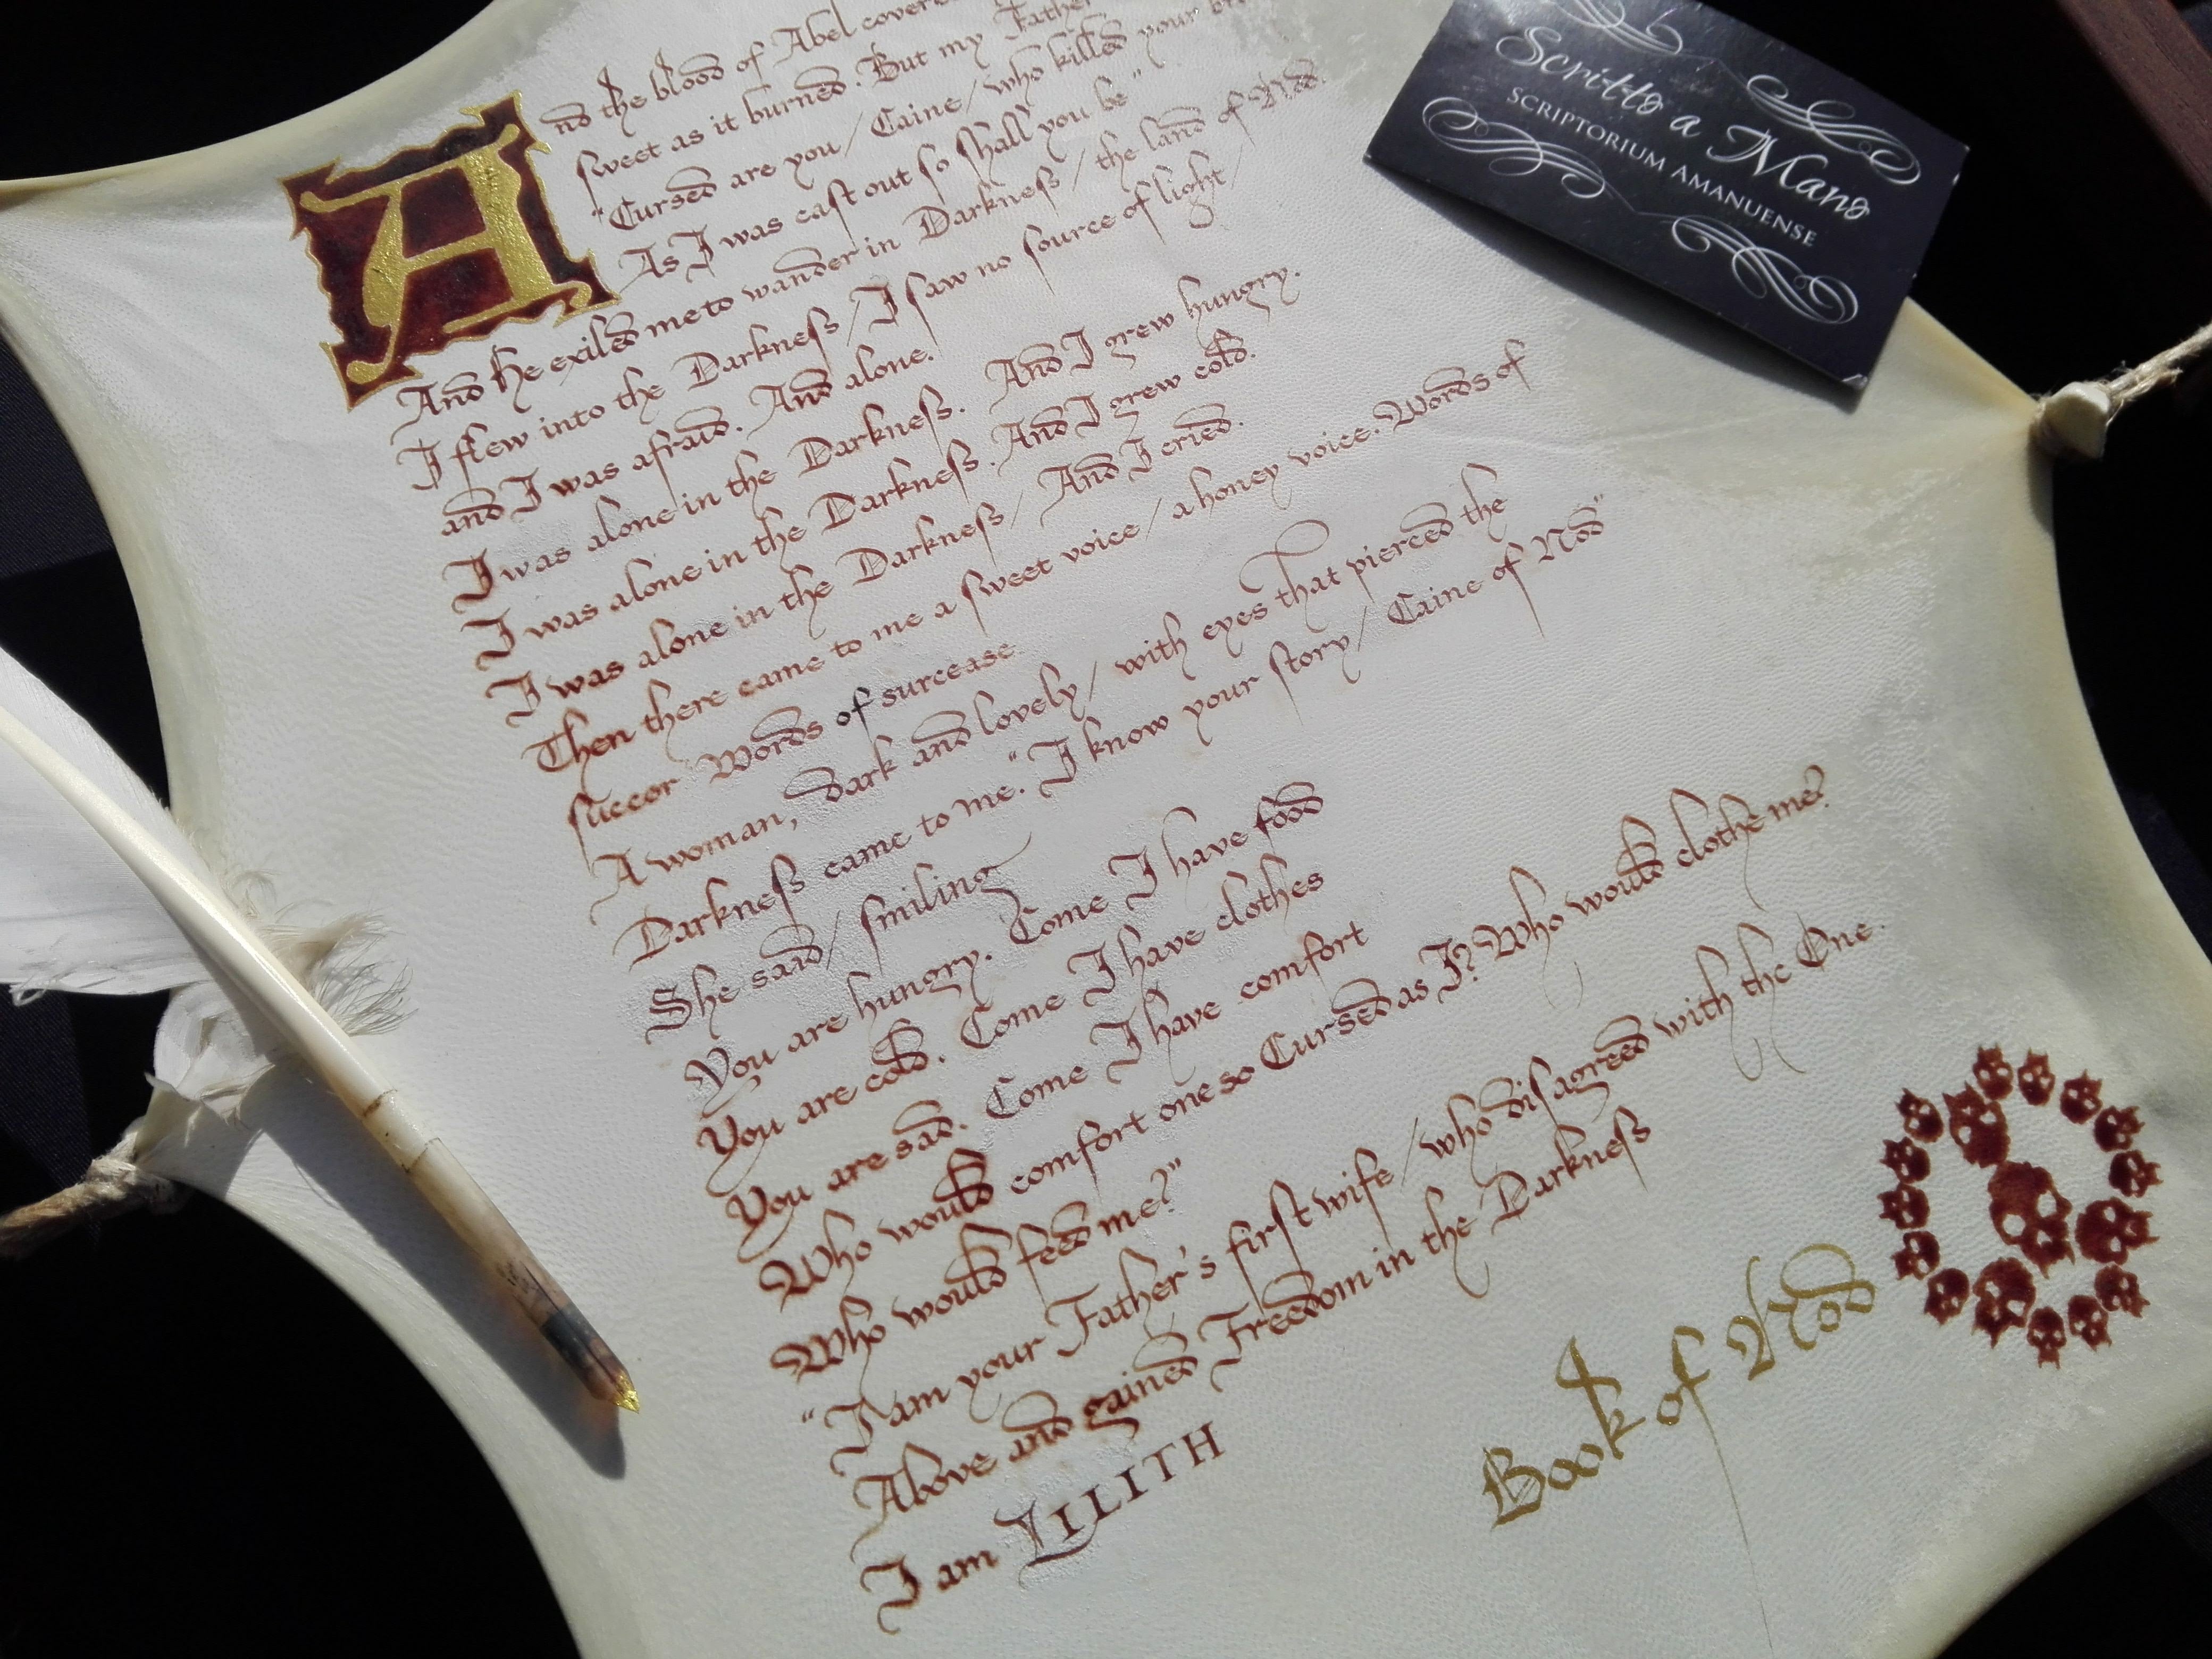 And the blood of Abel covere
sweet as it burned. But my Father
"Cursed are you / Caine / who killed your br
As I was cast out so shall you be"
And He exiled me to wander in Darkness / the land of Nod.
I flew into the Darkness / I saw no source of light /
and I was afraid. And alone.
I was alone in the Darkness. And I grew hungry.
I was alone in the Darkness. And I grew cold.
I was alone in the Darkness / And I cried.
Then there came to me a sweet voice / a honey voice. Words of
succor Words of surcease.
A woman, dark and lovely / with eyes that pierced the
Darkness came to me. "I know your story / Caine of Nod"
She said / smiling
You are hungry. Come I have food
You are cold. Come I have clothes
You are sad. Come I have comfort
Who would comfort one so Cursed as I? Who would clothe me?
Who would feed me?"
"I am your Father's first wife / who disagreed with the One.
Above and gained Freedom in the Darkness
I am LILITH
Book of Nod
Scritto a Mano
SCRIPTORIUM AMANUENSE